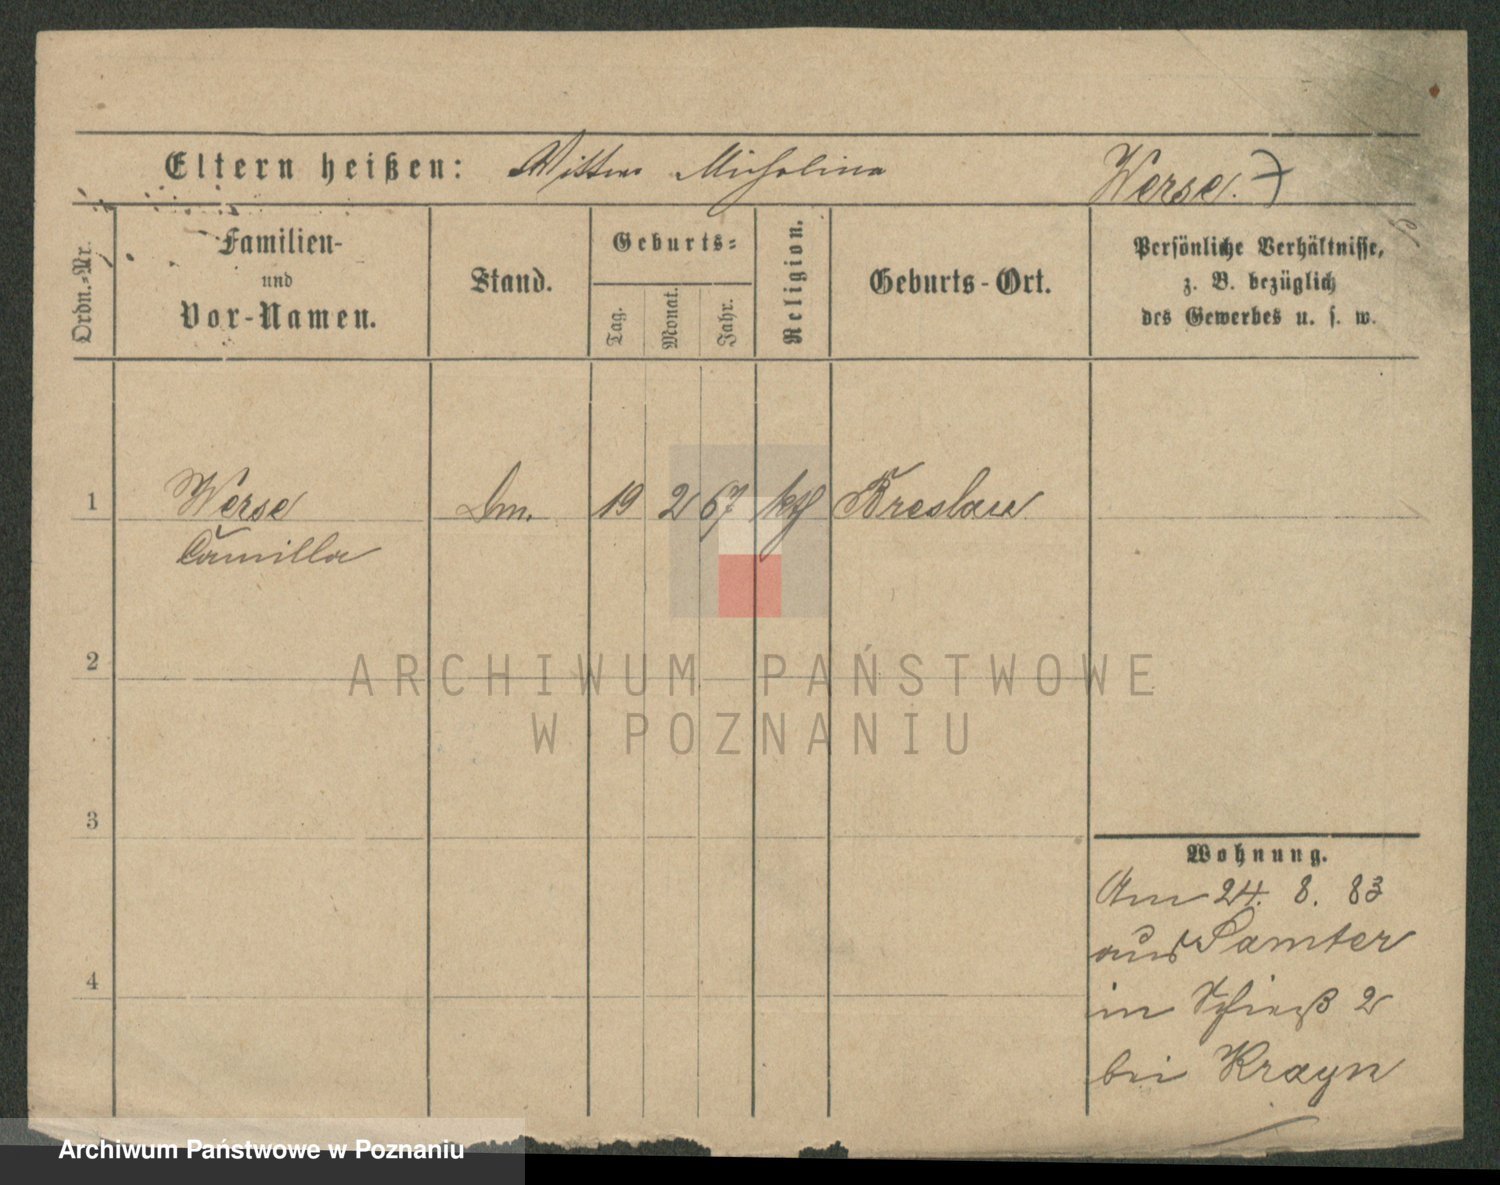 Eltern heißen: Micholina Werse.
Ordn.-Nr.
Familien-
und
Vor-Namen.
Stand.
Geburts-
Tag.
Monat.
Jahr.
Religion.
Geburts-Ort.
Persönliche Verhältnisse,
z. B. bezüglich
des Gewerbes u. s. w.
1 Werse 19 2 67 kth Breslau
Camilla
2
3
4
Wohnung.
Am 24. 8. 83
aus Samter
in Schieß 2
bei Krayn
ARCHIWUM PAŃSTWOWE
W POZNANIU
Archiwum Państwowe w Poznaniu